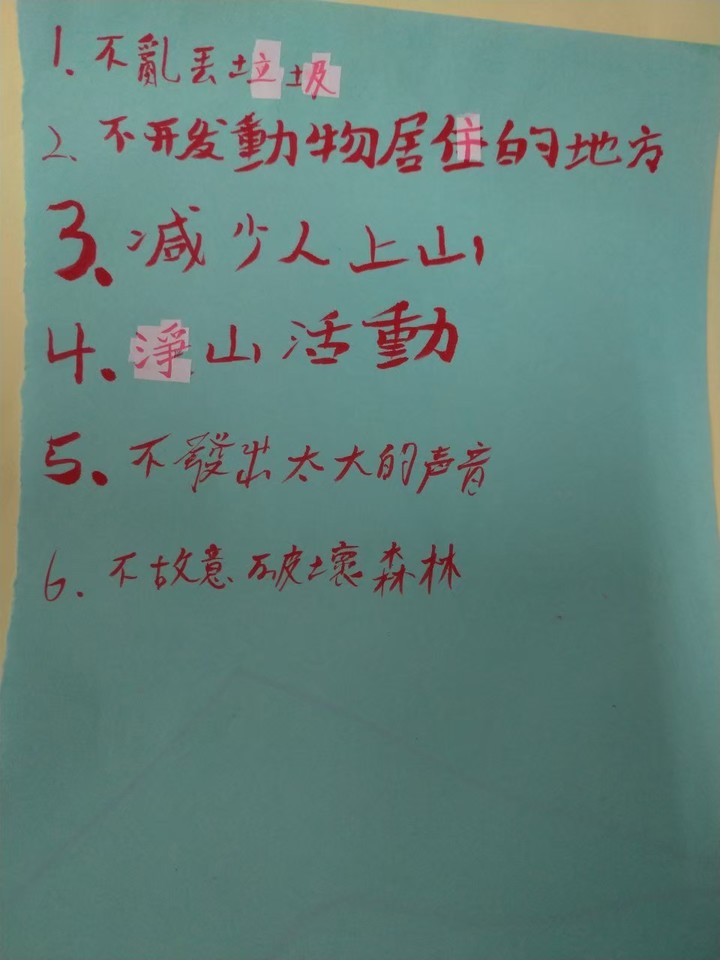 1. 不亂丟垃圾
2. 不开发動物居住的地方
3. 减少人上山
4. 淨山活動
5. 不發出太大的声音
6. 不故意破壞森林